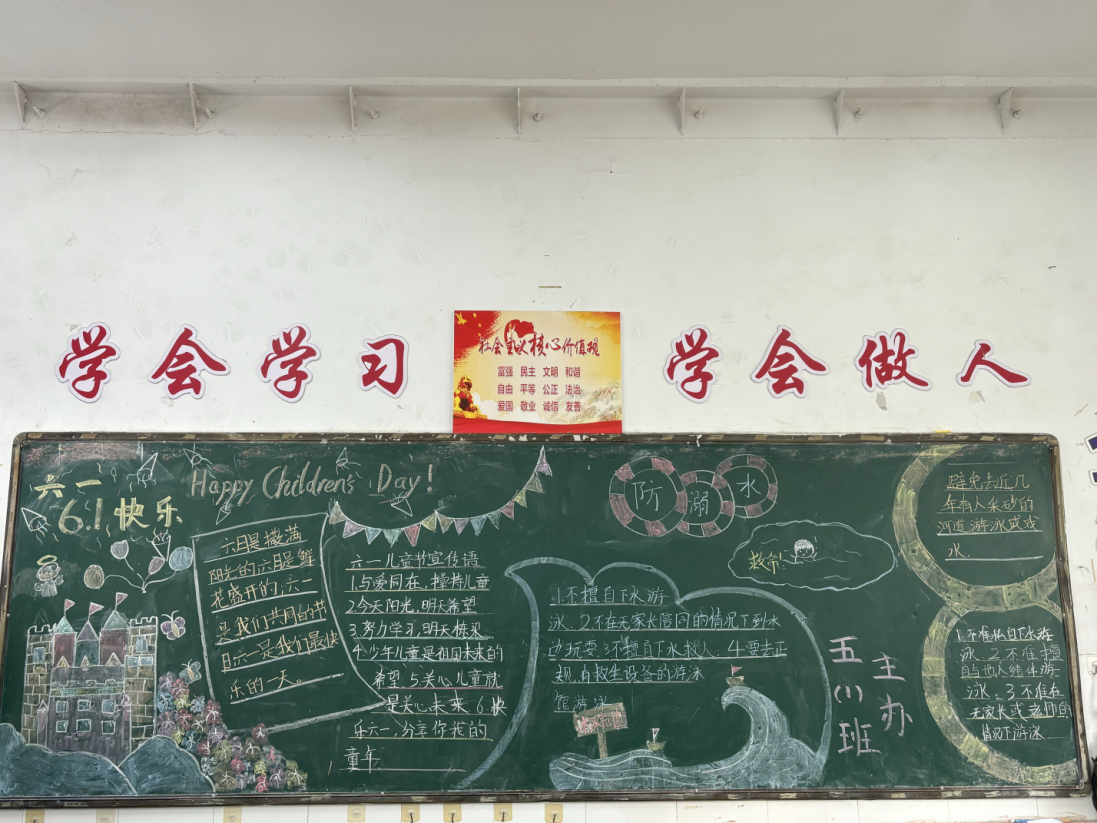 学会学习
社会主义核心价值观
富强 民主 文明 和谐
自由 平等 公正 法治
爱国 敬业 诚信 友善
学会做人
六一
6.1快乐
Happy Children's Day!
六月是撒满
阳光的六月是鲜
花盛开的,六一
是我们共月的节
日六一是我们最快
乐的一天。
六一儿童节宣传语
1.与爱同在,撑持儿童
2今天阳光,明天希望
3.努力学习,明天栋梁
4.少年儿童是祖国未来的
希望.5关心儿童就
是关心未来.6快
乐六一,分享你我的
童年
防溺水
救命!
1.不擅自下水游
泳.2不在无家长陪同的情况下到水
边玩耍.3不擅自下水救人.4要去正
规,有救生设备的游泳
馆游泳
五(1)班
主办
避免去近几
年有人采砂的
河道游泳或戏
水.
1.不准私自下水游
泳.2不准擅
自与他人结伴游
泳.3不准在
无家长或老师的
情况下游泳